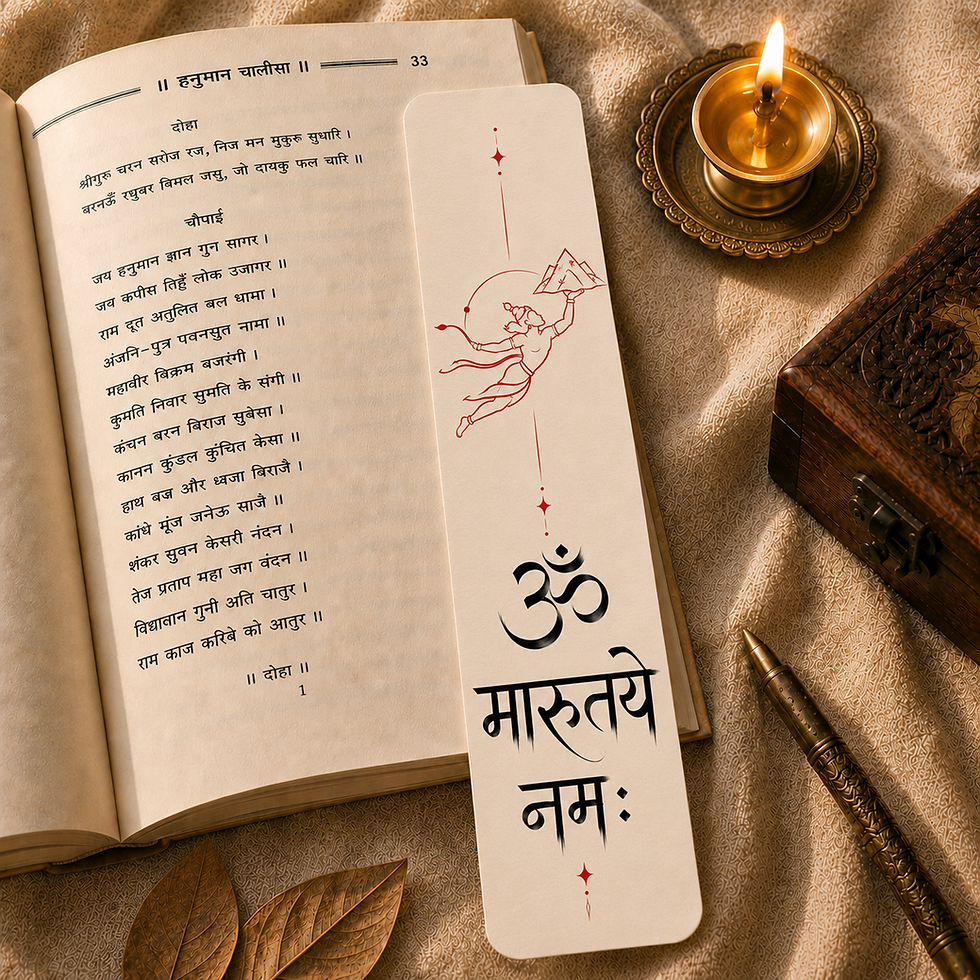 ॥ हनुमान चालीसा ॥ 33
दोहा
श्रीगुरु चरन सरोज रज, निज मन मुकुरु सुधारि ।
बरनऊँ रघुबर बिमल जसु, जो दायकु फल चारि ॥
चौपाई
जय हनुमान ज्ञान गुन सागर ।
जय कपीस तिहुँ लोक उजागर ॥
राम दूत अतुलित बल धामा ।
अंजनि-पुत्र पवनसुत नामा ॥
महावीर बिक्रम बजरंगी ।
कुमति निवार सुमति के संगी ॥
कंचन बरन बिराज सुबेसा ।
कानन कुंडल कुंचित केसा ॥
हाथ बज्र और ध्वजा बिराजै ।
कांधे मूंज जनेऊ साजै ॥
शंकर सुवन केसरी नंदन ।
तेज प्रताप महा जग वंदन ॥
विद्यावान गुनी अति चातुर ।
राम काज करिबे को आतुर ॥
॥ दोहा ॥
1
ॐ
मारुतये
नमः